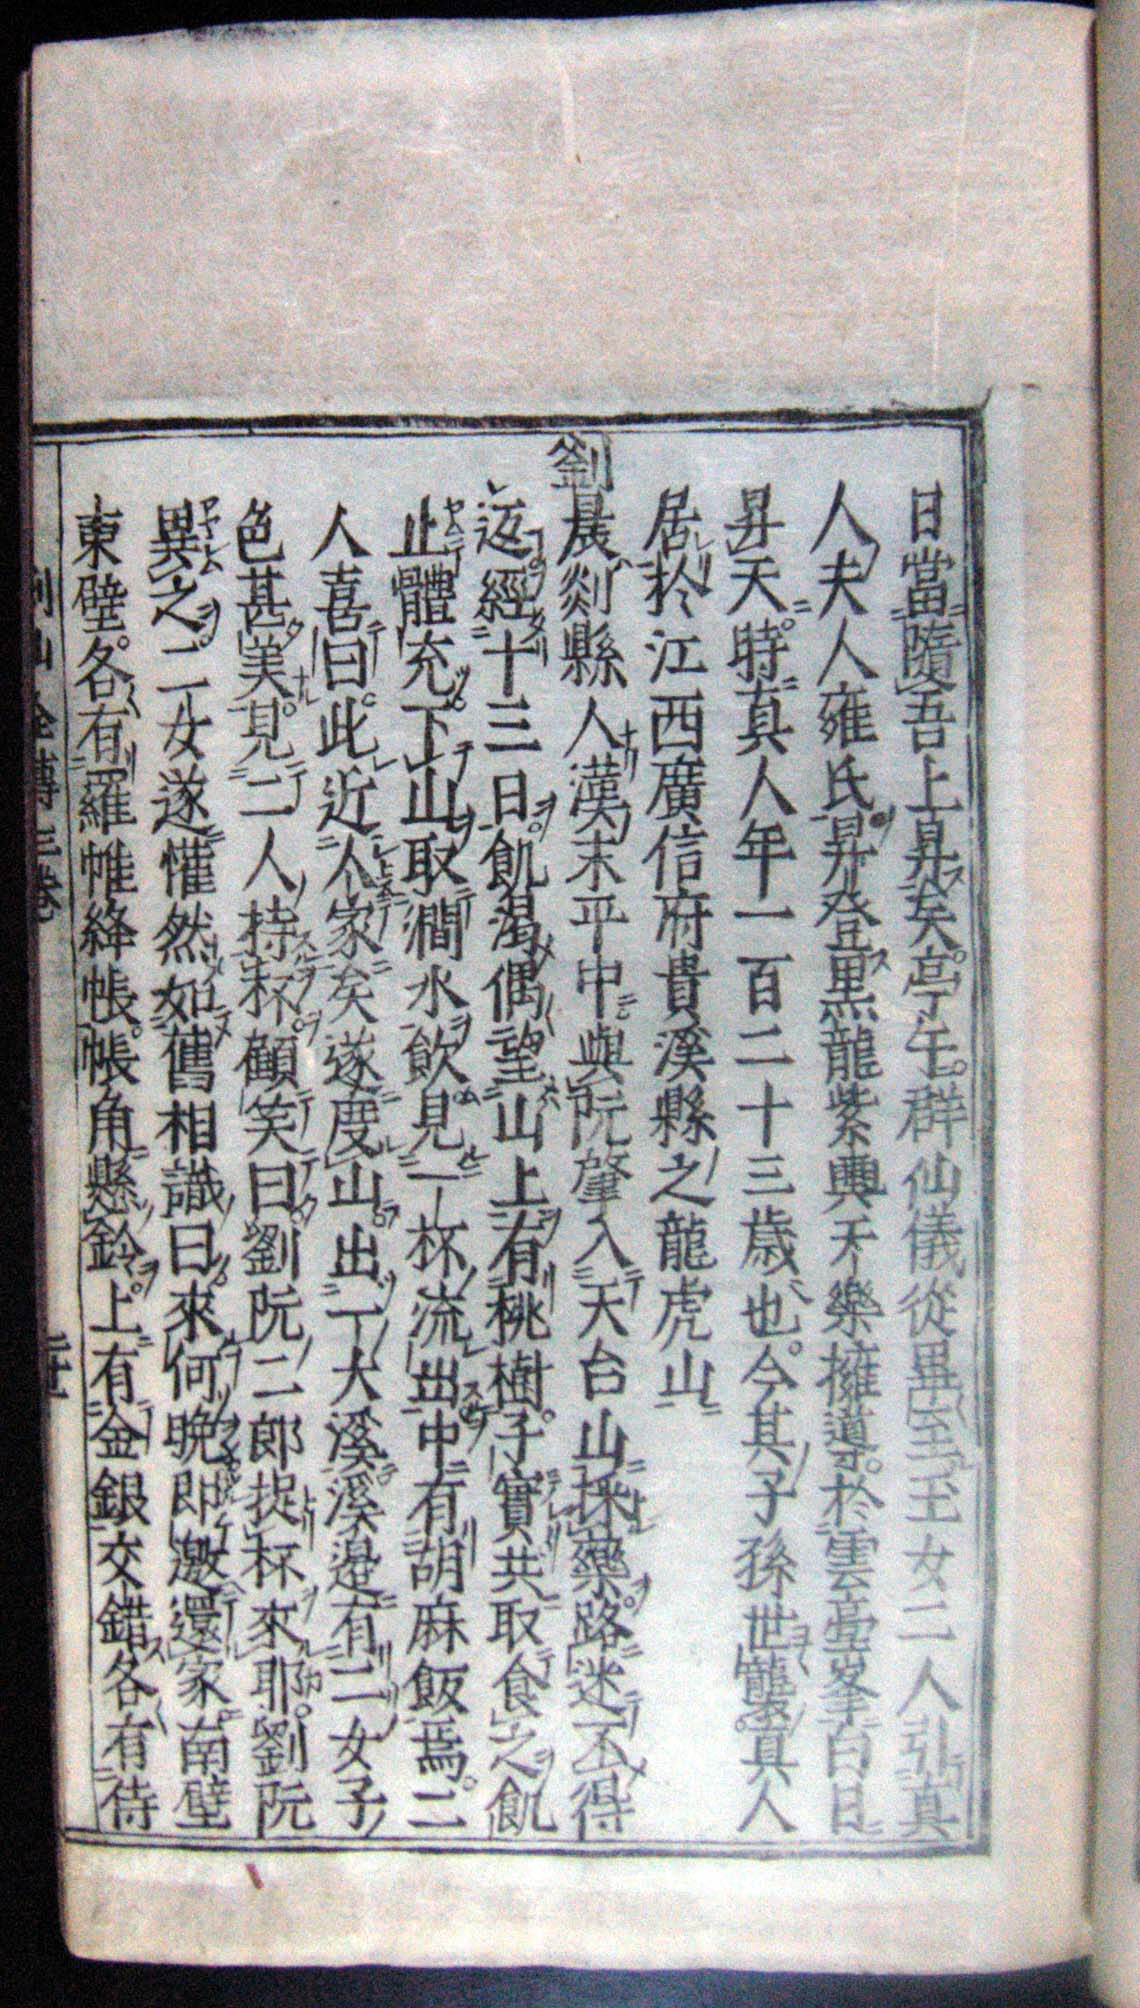 日當隨吾上昇矣亭午群仙儀從畢至玉女二人引真
人夫人雍氏昇登黒龍紫輿天樂擁導於雲臺峯白日
昇天時真人年一百二十三歳也今其子孫世襲真人
居於江西廣信府貴溪縣之龍虎山
劉晨剡縣人漢末平中與阮肇入天台山採藥路迷不得
返經十三日飢渴偶望山上有桃樹子實共取食之飢
止體充下山取澗水飲見一杯流出中有胡麻飯焉二
人喜曰此近人家矣遂度山出一大溪溪邉有二女子
色甚美見二人持杯顧笑曰劉阮二郎捉杯來耶劉阮
異之二女遂懽然如舊相識曰來何晩即邀還家南壁
東壁各有羅帷絳帳帳角懸鈴上有金銀交錯各有侍
列仙全傳三卷